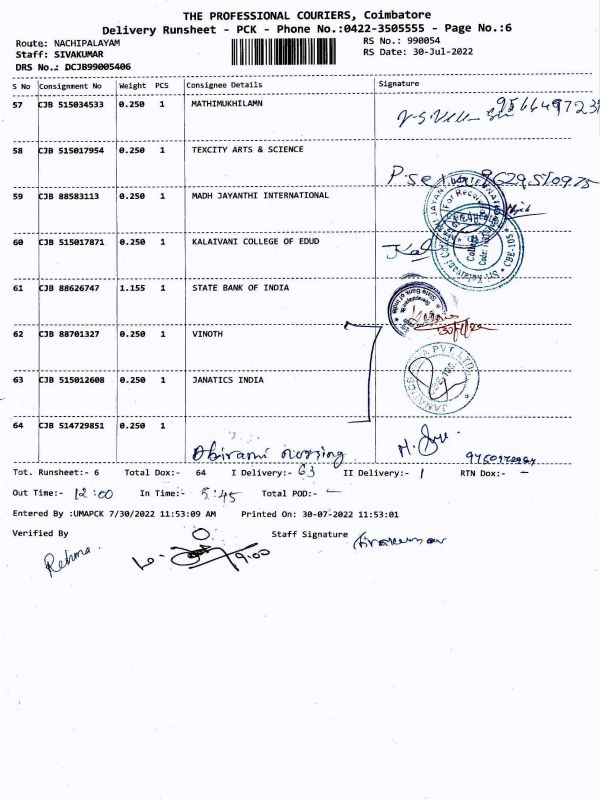 THE PROFESSIONAL COURIERS, Coimbatore
Delivery Runsheet - PCK - Phone No.:0422-3505555 - Page No.:6
Route: NACHIPALAYAM RS No.: 990054
Staff: SIVAKUMAR RS Date: 30-Jul-2022
DRS No.: DCJB99005406
S No Consignment No Weight PCS Consignee Details Signature
57 CJB 515034533 0.250 1 MATHIMUKHILAMN
58 CJB 515017954 0.250 1 TEXCITY ARTS & SCIENCE
59 CJB 88583113 0.250 1 MADH JAYANTHI INTERNATIONAL
60 CJB 515017871 0.250 1 KALAIVANI COLLEGE OF EDUD
61 CJB 88626747 1.155 1 STATE BANK OF INDIA
62 CJB 88701327 0.250 1 VINOTH
63 CJB 515012608 0.250 1 JANATICS INDIA
64 CJB 514729851 0.250 1
Abirami nursing
Tot. Runsheet:- 6 Total Dox:- 64 I Delivery:- 63 II Delivery:- 1 RTN Dox:- -
Out Time:- 12:00 In Time:- 5:45 Total POD:- -
Entered By :UMAPCK 7/30/2022 11:53:09 AM Printed On: 30-07-2022 11:53:01
Verified By Staff Signature
9:00